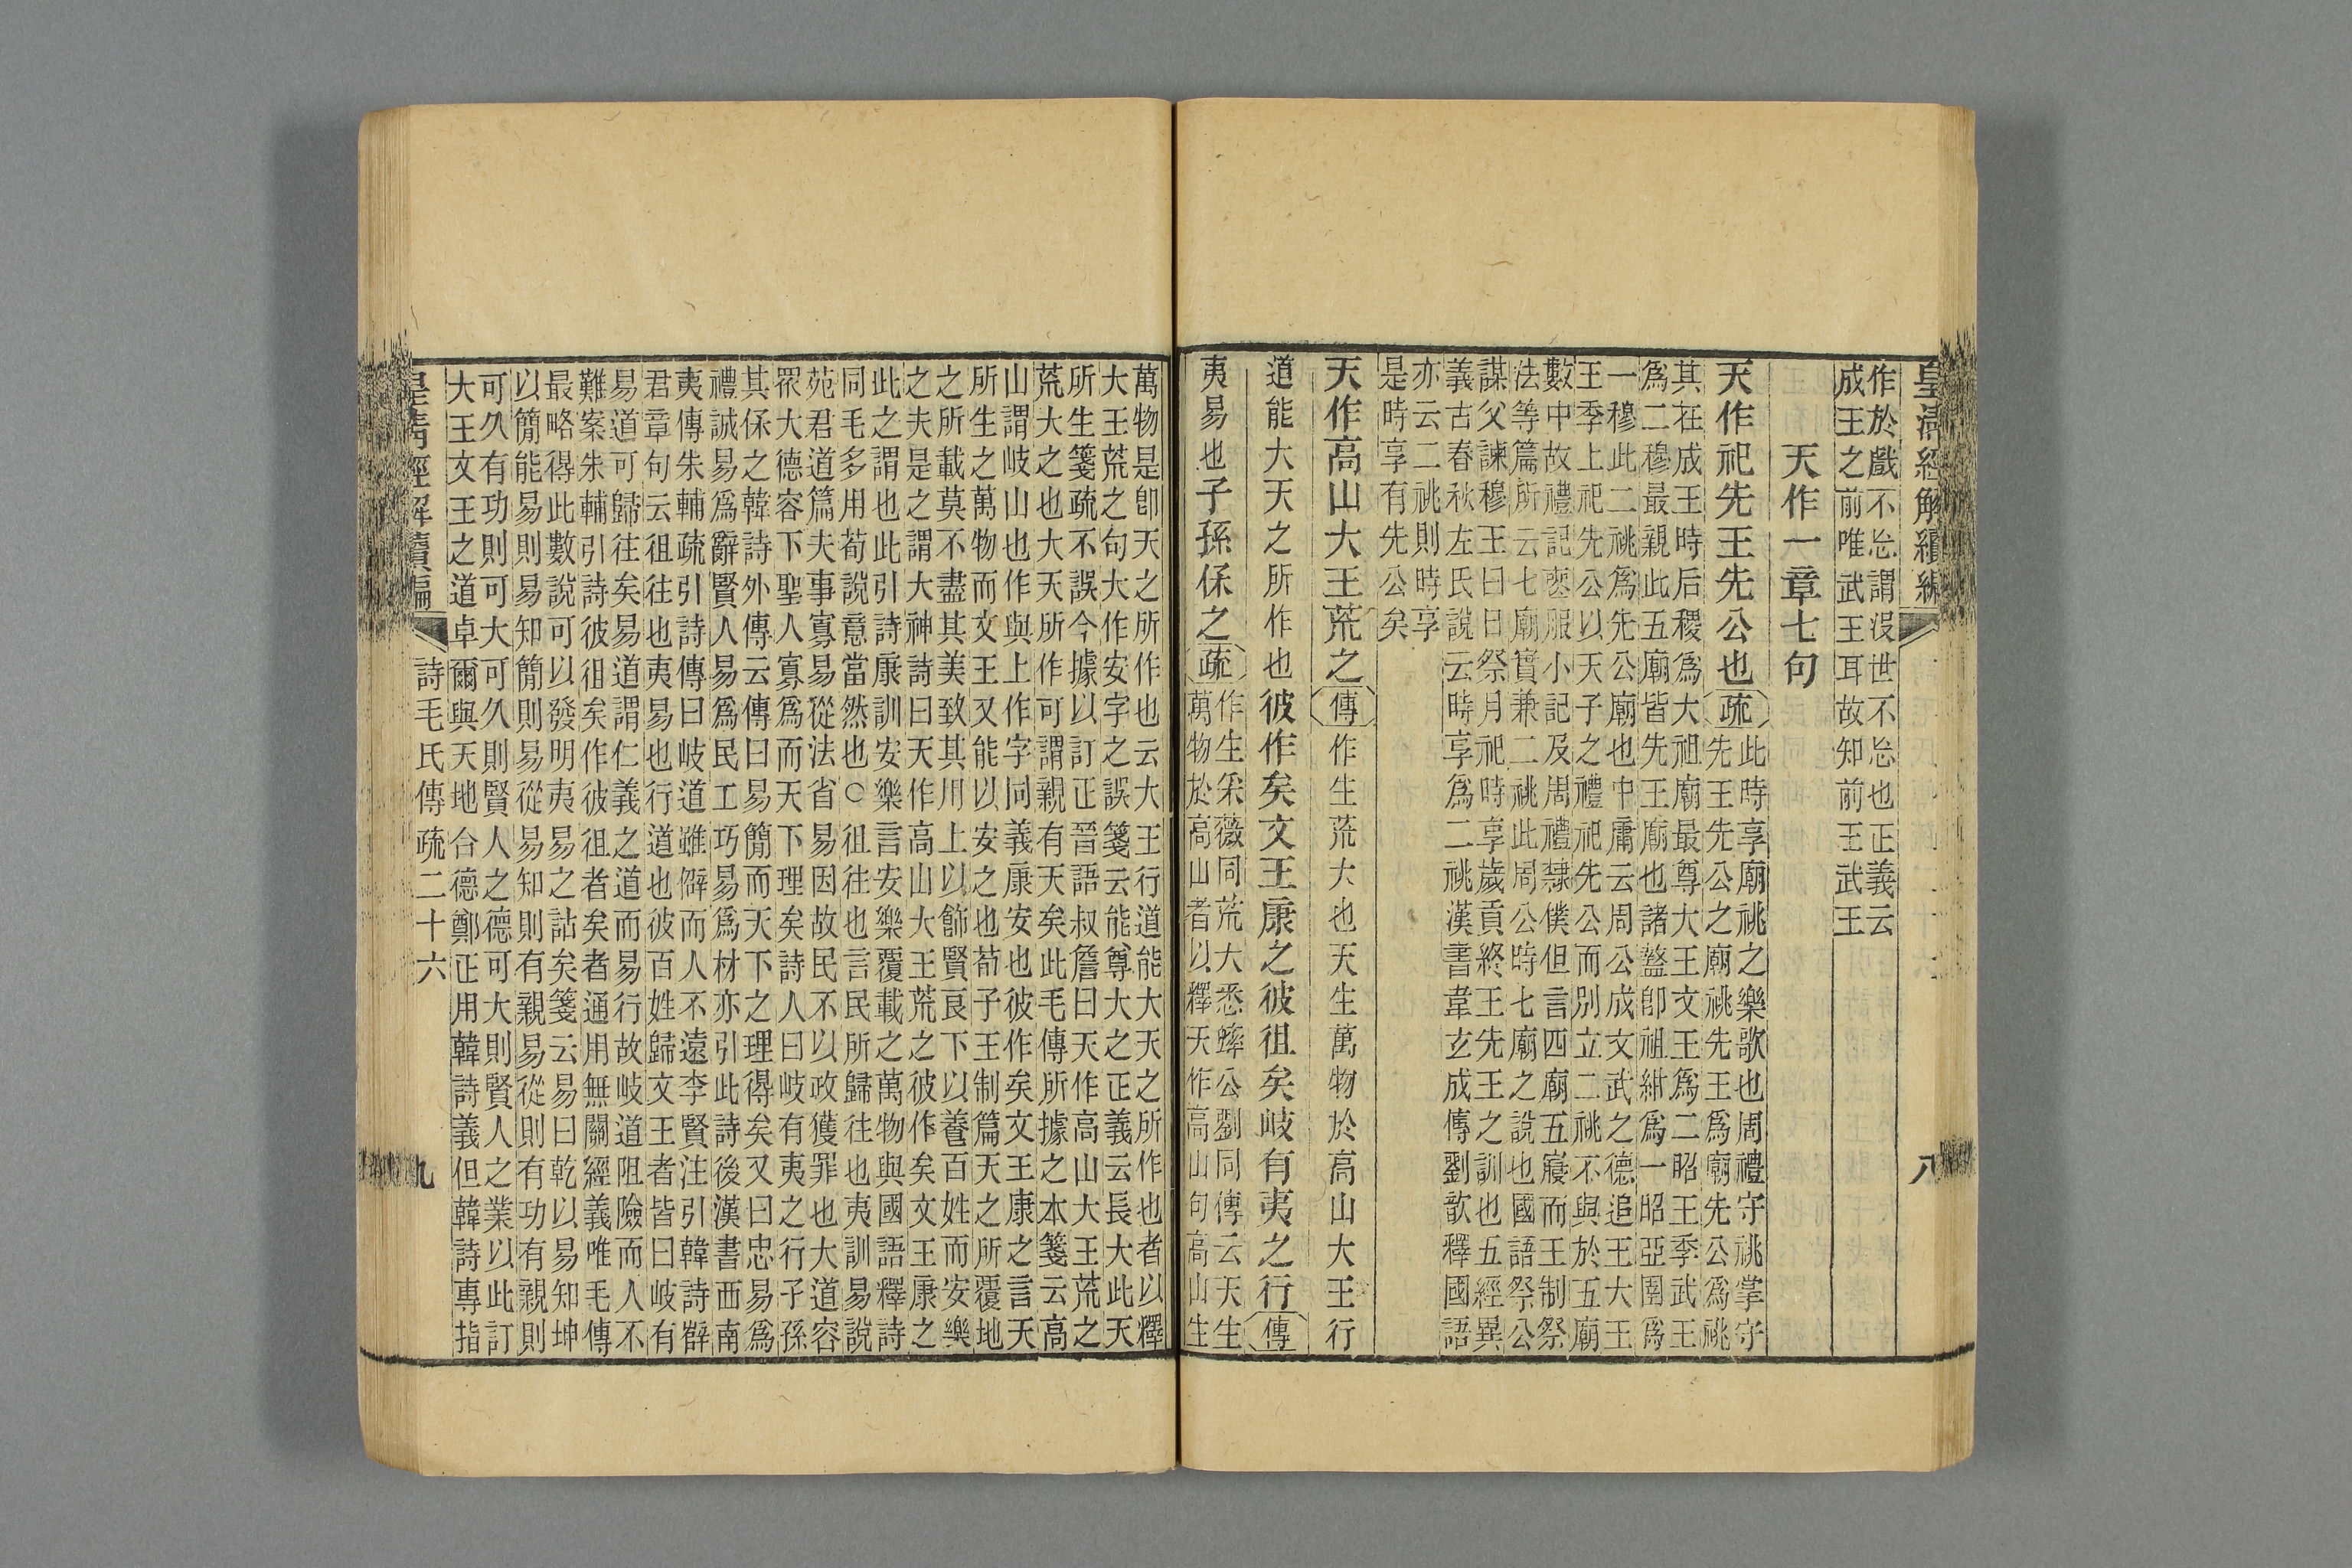 皇淸經解續編
八
作於戲不㤀謂沒世不㤀也正義云
成王之前唯武王耳故知前王武王
天作一章七句
天作祀先王先公也疏
此時享廟祧之樂歌也周禮守祧掌守
先王先公之廟祧先王爲廟先公爲祧
其在成王時后稷爲大祖廟最尊大王文王爲二昭王季武王
爲二穆最親此五廟皆先王廟也諸盩卽祖紺爲一昭亞圉爲
一穆此二祧爲先公廟也中庸云周公成文武之德追王大王
王季上祀先公以天子之禮祀先公而別立二祧不與於五廟
數中故禮記喪服小記及周禮隸僕但言四廟五寢而王制祭
法等篇所云七廟實兼二祧此周公時七廟之說也國語祭公
謀父諫穆王曰日祭月祀時享歲貢終王先王之訓也五經異
義古春秋左氏說云時享爲二祧漢書韋玄成傳劉歆釋國語
亦云二祧則時享
是時享有先公矣
天作高山大王荒之傳作生荒大也天生萬物於高山大王行
道能大天之所作也彼作矣文王康之彼徂矣岐有夷之行傳
夷易也子孫保之疏
作生采薇同荒大悉蟀公劉同傳云天生
萬物於高山者以釋天作高山句高山生
萬物是卽天之所作也云大王行道能大天之所作也者以釋
大王荒之句大作安字之誤箋云能尊大之正義云長大此天
所生箋疏不誤今據以訂正晉語叔詹曰天作高山大王荒之
荒大之也大天所作可謂親有天矣此毛傳所據之本箋云高
山謂岐山也作與上作字同義康安也彼作矣文王康之言天
所生之萬物而文王又能以安之也荀子王制篇天之所覆地
之所載莫不盡其美致其用上以飾賢良下以養百姓而安樂
之夫是之謂大神詩曰天作高山大王荒之彼作矣文王康之
此之謂也此引詩康訓安樂言安樂覆載之萬物與國語釋詩
同毛多用荀說意當然也○徂往也言民所歸往也夷訓易說
苑君道篇夫事寡易從法省易因故民不以政獲罪也大道容
眾大德容下聖人寡爲而天下理矣詩人曰岐有夷之行子孫
其保之韓詩外傳云傳曰易簡而天下之理得矣又曰忠易爲
禮誠易爲辭賢人易爲民工巧易爲材亦引此詩後漢書西南
夷傳朱輔疏引詩傳曰岐道雖僻而人不遠李賢注引韓詩辥
君章句云徂往也夷易也行道也彼百姓歸文王者皆曰岐有
易道可歸往矣易道謂仁義之道而易行故岐道阻險而人不
難案朱輔引詩彼徂矣作彼徂者矣者通用無關經義唯毛傳
最略得此數說可以發明夷易之詁矣箋云易曰乾以易知坤
以簡能易則易知簡則易從易知則有親易從則有功有親則
可久有功則可大可久則賢人之德可大則賢人之業以此訂
大王文王之道卓爾與天地合德鄭正用韓詩義但韓詩專指
皇淸經解續編
詩毛氏傳疏二十六
九